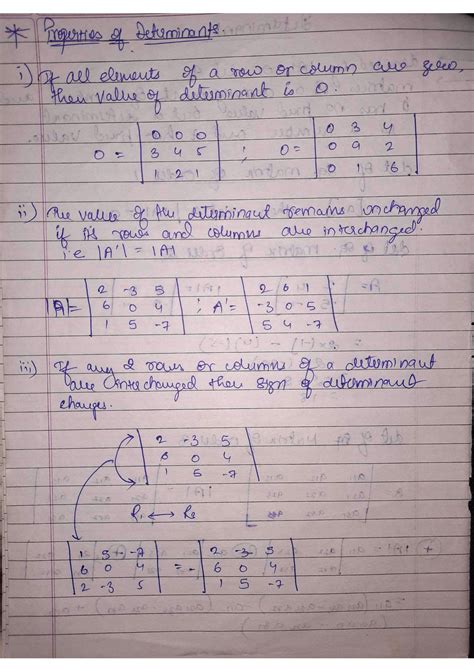 * Properties of Determinants.
i) If all elements of a row or column are zero,
then value of determinant is 0.
0 = | 0 0 0 | ; 0 = | 0 3 4 |
| 3 4 5 | | 0 9 2 |
| 1 2 1 | | 0 1 6 |
ii) The value of the determinant remains unchanged
if its rows and columns are interchanged.
i.e |A'| = |A|
|A| = | 2 -3 5 | ; A' = | 2 6 1 |
| 6 0 4 | | -3 0 5 |
| 1 5 -7 | | 5 4 -7 |
iii) If any 2 rows or columns of a determinant
are interchanged then sign of determinant
changes.
| 2 -3 5 |
| 6 0 4 |
| 1 5 -7 |
R₁ ↔ R₃
| 1 5 -7 | = - | 2 -3 5 |
| 6 0 4 | | 6 0 4 |
| 2 -3 5 | | 1 5 -7 |